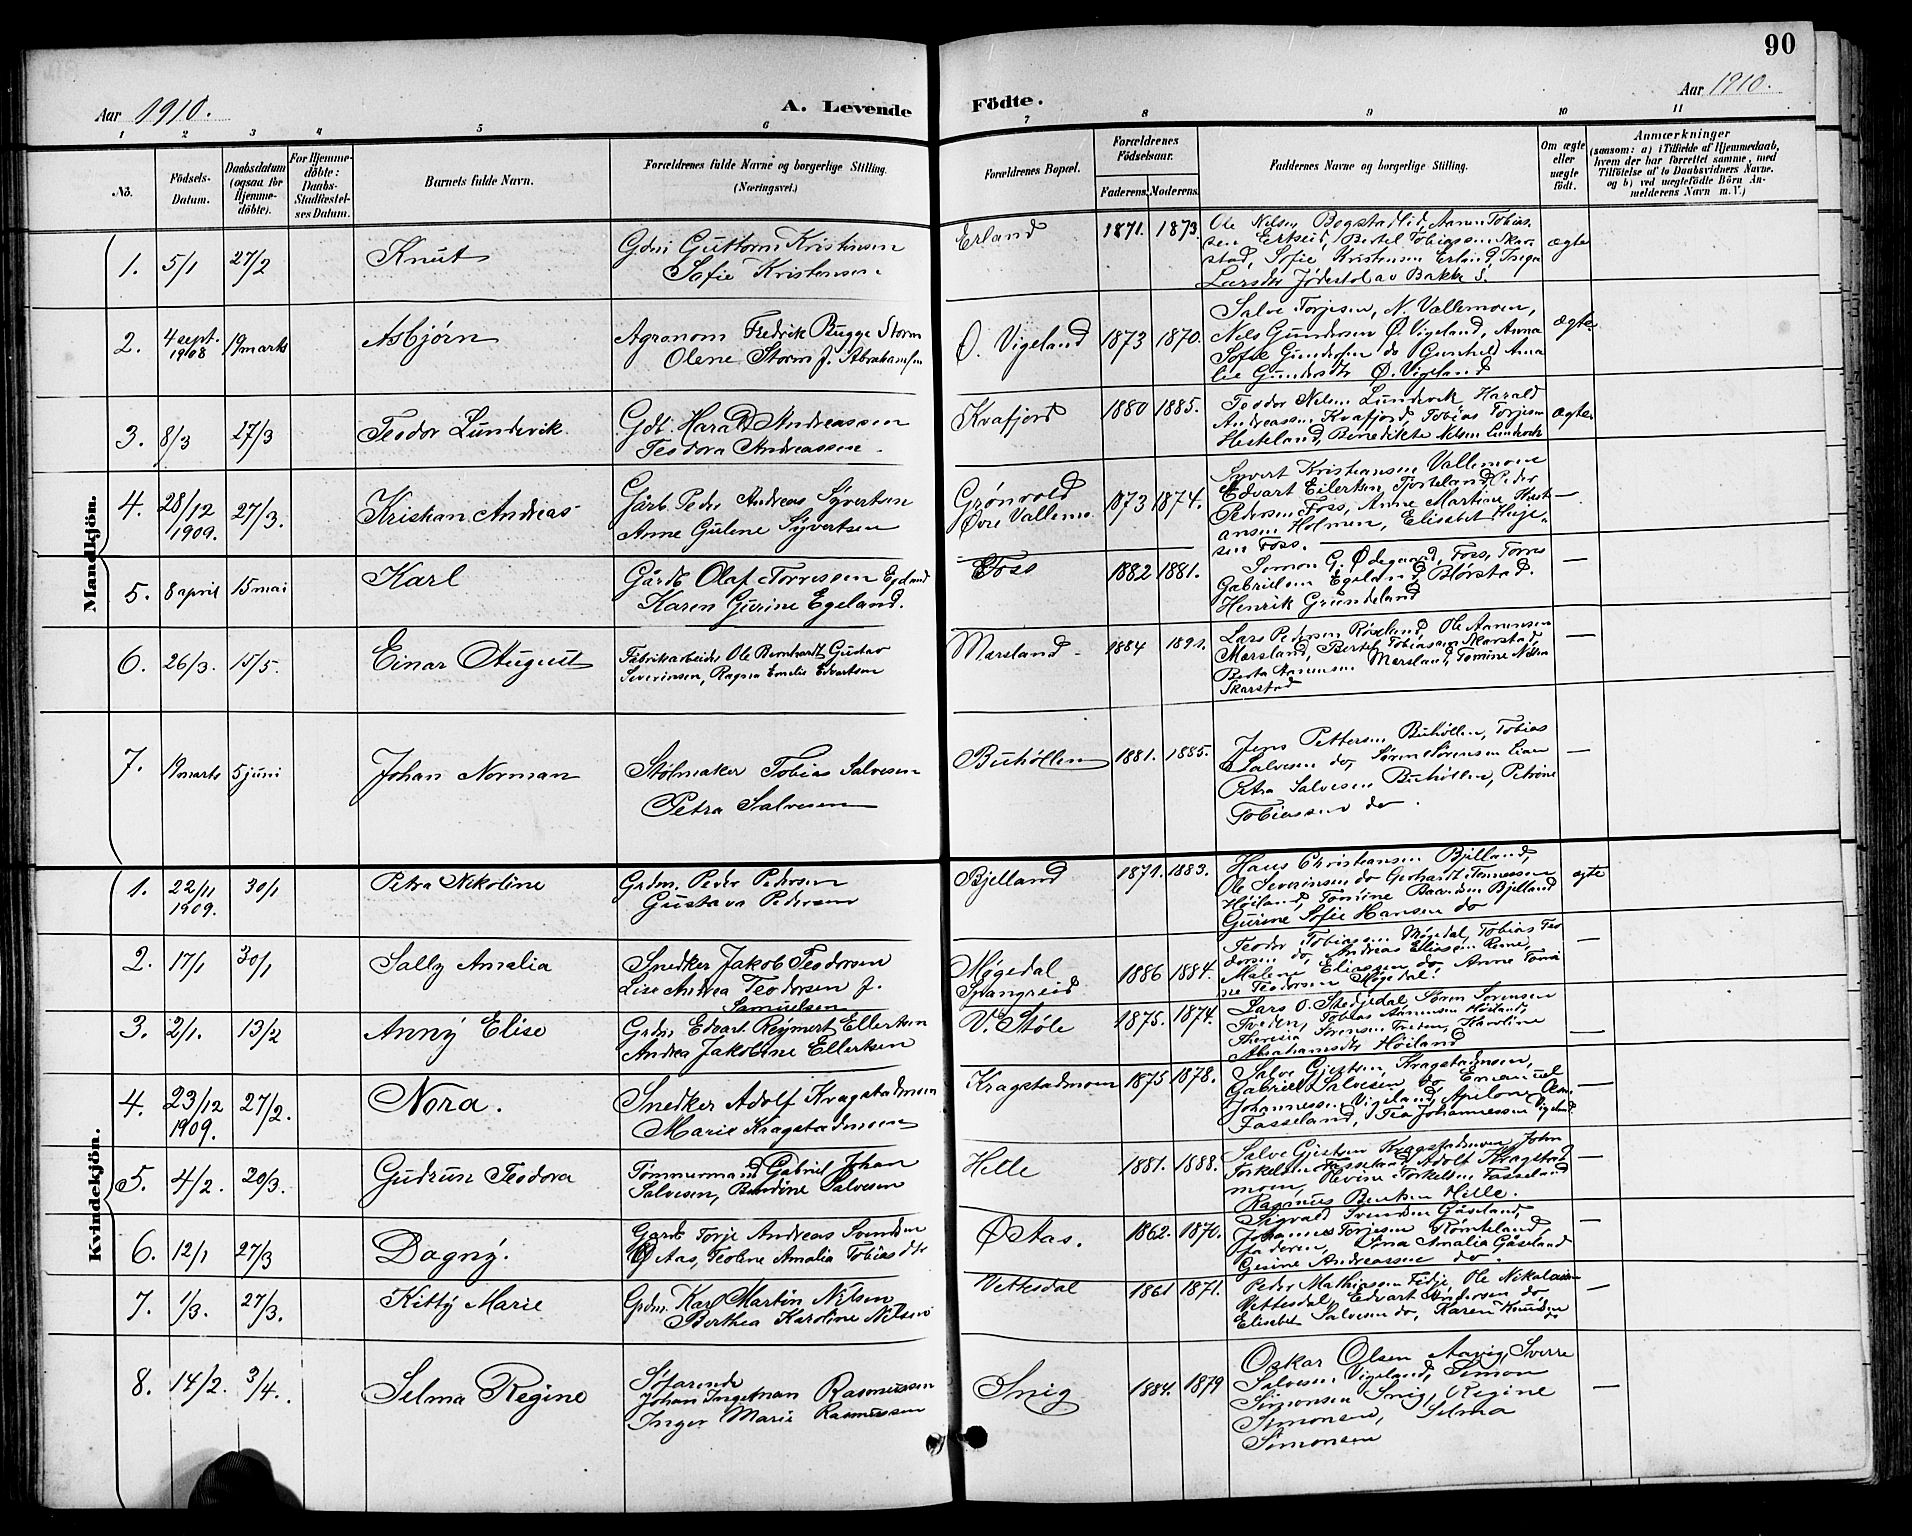 90
Aar 1910.
A. Levende Födte.
Aar 1910.
1 2 3 4 5 6 7 8 9 10 11
No.
Födsels-Datum.
Daabsdatum (ogsaa for Hjemmedöbte).
For Hjemmedöbte: Daabs-Stadfæstelses Datum.
Barnets fulde Navn.
Forældrenes fulde Navne og borgerlige Stilling. (Næringsvei.)
Forældrenes Bopæl.
Forældrenes Födselsaar.
Faderens. Moderens.
Faddernes Navne og borgerlige Stilling.
Om ægte eller uægte födt.
Anmærkninger (saasom: a) i Tilfælde af Hjemmedaab, hvem der har forrettet samme, med Tilföielse af to Daabsvidners Navne. og b) ved uægtefödte Börn Anmelderens Navn m. V.)
Mandkjön.
1. 5/1 27/2 Knut
Gdbr Guttorm Kristensen
Sofie Kristensen
Erland 1871. 1873.
Ole Nilsen Bogstadlid, Aanen Tobias-
sen Ertseid, Bertel Tobiassen Skar-
stad, Sofie Kristensen Erland, Inga
Larsdtr Jødestol av Bakke S.
ægte
2. 4 sept. 1908 19 marts Asbjørn
Agronom Fredrik Bugge Storm
Olene Storm f. Abrahamsen
Ø. Vigeland 1873 1870.
Salve Torjesen, N. Vallemoen,
Nils Gundersen Ø. Vigeland, Anna
Sofie Gundersen do Gunhild Ama
lie Gundersdtr Ø. Vigeland
ægte
3. 8/3 27/3 Teodor Lundevik
Gdb. Harald Andreassen
Teodora Andreassen
Kvafjord 1880 1885.
Teodor Nilsen Lundevik Harald
Andreassen Kvafjord, Tobias Torjesen
Hesteland, Benedikte Nilsen Lundevik
ægte
4. 28/12 1909. 27/3. Kristian Andreas
Gårb. Peder Andreas Syvertsen
Anne Gulene Syvertsen
Grønvold Øvre Vallemo 1873 1874.
Syvert Kristiansen Vallemoen
Edvart Eilertsen Fosteland, Peder
Pedersen Foss, Anne Martine Krist-
ansen Holmen, Elisabet
sen Foss.
—
5. 8 april 15 mai Karl
Gårdb Olaf Torressen Egeland
Karen Gurine Egeland.
Foss 1882 1881.
Simon G. Ødegaard, Foss, Torres
Gabrielsen Egeland, Blørstad.
Henrik Grundeland
—
6. 26/3. 15/5. Einar August
Fabrikarbeider Ole Bernhardt Gustav
Severinsen, Ragna Emelie Edvartsen
Marsland 1884 1891.
Lars Pedersen Røseland, Ole Aanensen
Marsland, Bertel Tobiassen Skarstad,
Berta Aanensen Marsland, Tomine Nilsen
Skarstad
—
7. 19 marts 5 juni Johan Norman
Stolmaker Tobias Salvesen
Petra Salvesen
Buhøllen 1881. 1885.
Jens Pettersen Buhøllen, Tobias
Salvesen do, Søren Sørensen Lian
Petra Salvesen Buhøllen, Petrine
Tobiassen do.
—
Kvindekjön.
1. 22/11 1909. 30/1 Petra Nikoline
Grdm. Peder Pedersen
Gustava Pedersen
Bjelland 1871. 1883.
Hans Christiansen Bjelland,
Ole Severinsen do Gerhardt Tønnessen
Høiland, Tomine Berntsen Bjelland
Gurine Sofie Hansen do
ægte
2. 17/1 30/1 Sally Amalia
Snedker Jakob Teodorsen
Lise Andrea Teodorsen f.
Samuelsen
Møgedal Spangreid 1886 1884.
Teodor Tobiassen Møgedal, Tobias Teo
dorsen do, Andreas Eliassen Rime,
Malene Eliassen do, Anne Tomi
ne Teodorsen Møgedal.
—
3. 2/1. 13/2 Anny Elise
Grdbr Edvart Reymert Ellertsen
Andrea Jakobine Ellertsen
V. Støle 1875. 1874.
Lars O. Spedjedal, Søren Sørensen
Tveden, Tobias Aanensen Høiland,
Theresia Sørensen Tveden, Karoline
Abrahamsdtr Høiland
—
4. 23/12 1909. 27/2. Nora.
Snedker Adolf Kragstadmoen
Marie Kragstadmoen
Kragstadmoen 1875 1878.
Salve Gjertsen, Kragstadmoen,
Gabriel Salvesen do Emanuel
Johannessen Vigeland, Apelone Olsen
Fasseland, Tea Johannessen Vigeland
—
5. 4/2. 20/3. Gudrun Teodora
Tømmermand Gabriel Johan
Salvesen, Berntine Salvesen
Helle 1881. 1888.
Salve Gjertsen Kragstadmoen, John
Torkelsen Fasseland, Adolf Kragstad
moen, Revine Torkelsen Fasseland
Rasmus Bentsen Helle.
—
6. 12/1 27/3 Dagny.
Gårdb Torje Andreas Svendsen
Ø Aas, Teoline Amalia Tobiasdtr
Ø Aas. 1862. 1870.
Sigvald Svendsen Gåseland,
Johannes Torjesen Rømteland,
faderen, Tina Amalia Gåseland
Gesine Andreassen do.
—
7. 1/3. 27/3. Kitty Marie
Grdm. Karl Martin Nilsen
Berthea Karoline Nilsen
Vettesdal 1861 1871.
Peder Mathiassen Fidje, Ole Nikolaisen
Vettesdal, Edvart Andersen do
Elisabet Salvesen do, Karen Knudsen
do
—
8. 14/2. 3/4. Selma Regine
Søfarende
Johan Ingelman Rasmussen
Inger Marie Rasmussen
Snig 1884. 1879
Oskar Olsen Aavig, Sverre
Salvesen Vigeland, Simon
Simonsen Snig, Regine
Simonsen, Selma
Simonsen
—